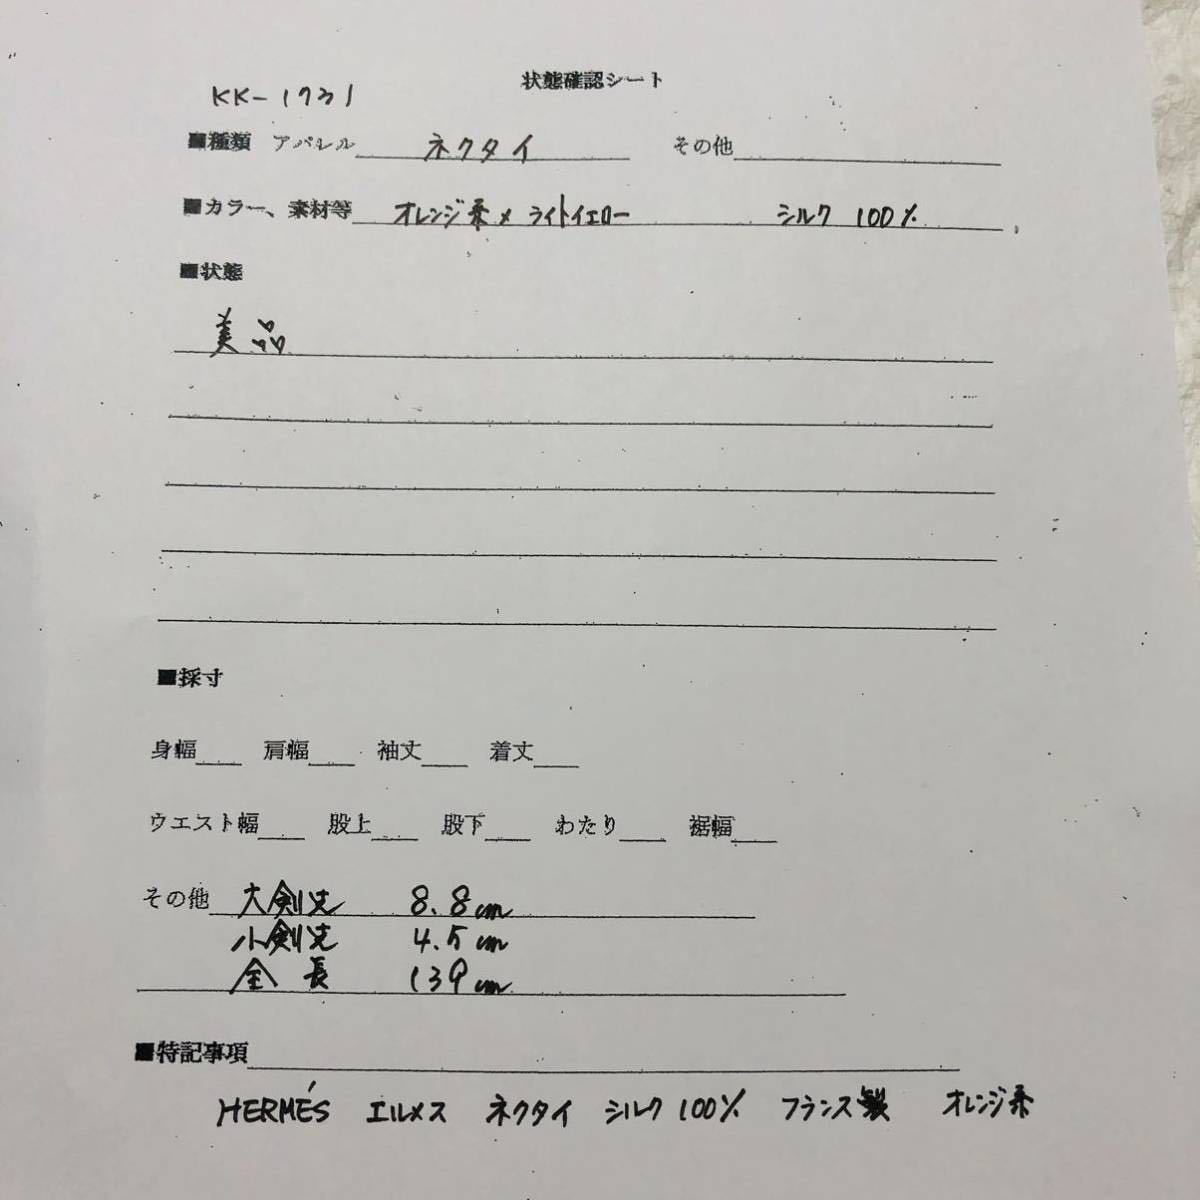 状態確認シート
KK-1731
■種類 アパレル ネクタイ その他
■カラー、素材等 オレンジ系×ライトイエロー シルク 100%
■状態
美品
■採寸
身幅 肩幅 袖丈 着丈
ウエスト幅 股上 股下 わたり 裾幅
その他 大剣先 8.8cm
小剣先 4.5cm
全長 139cm
■特記事項
HERMÉS エルメス ネクタイ シルク100% フランス製 オレンジ系